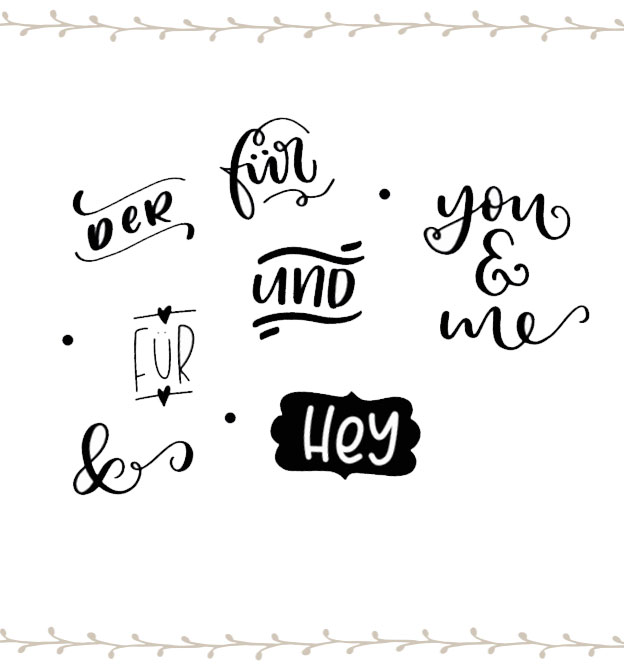 für
DER
you
&
me
und
FÜR
Hey
&